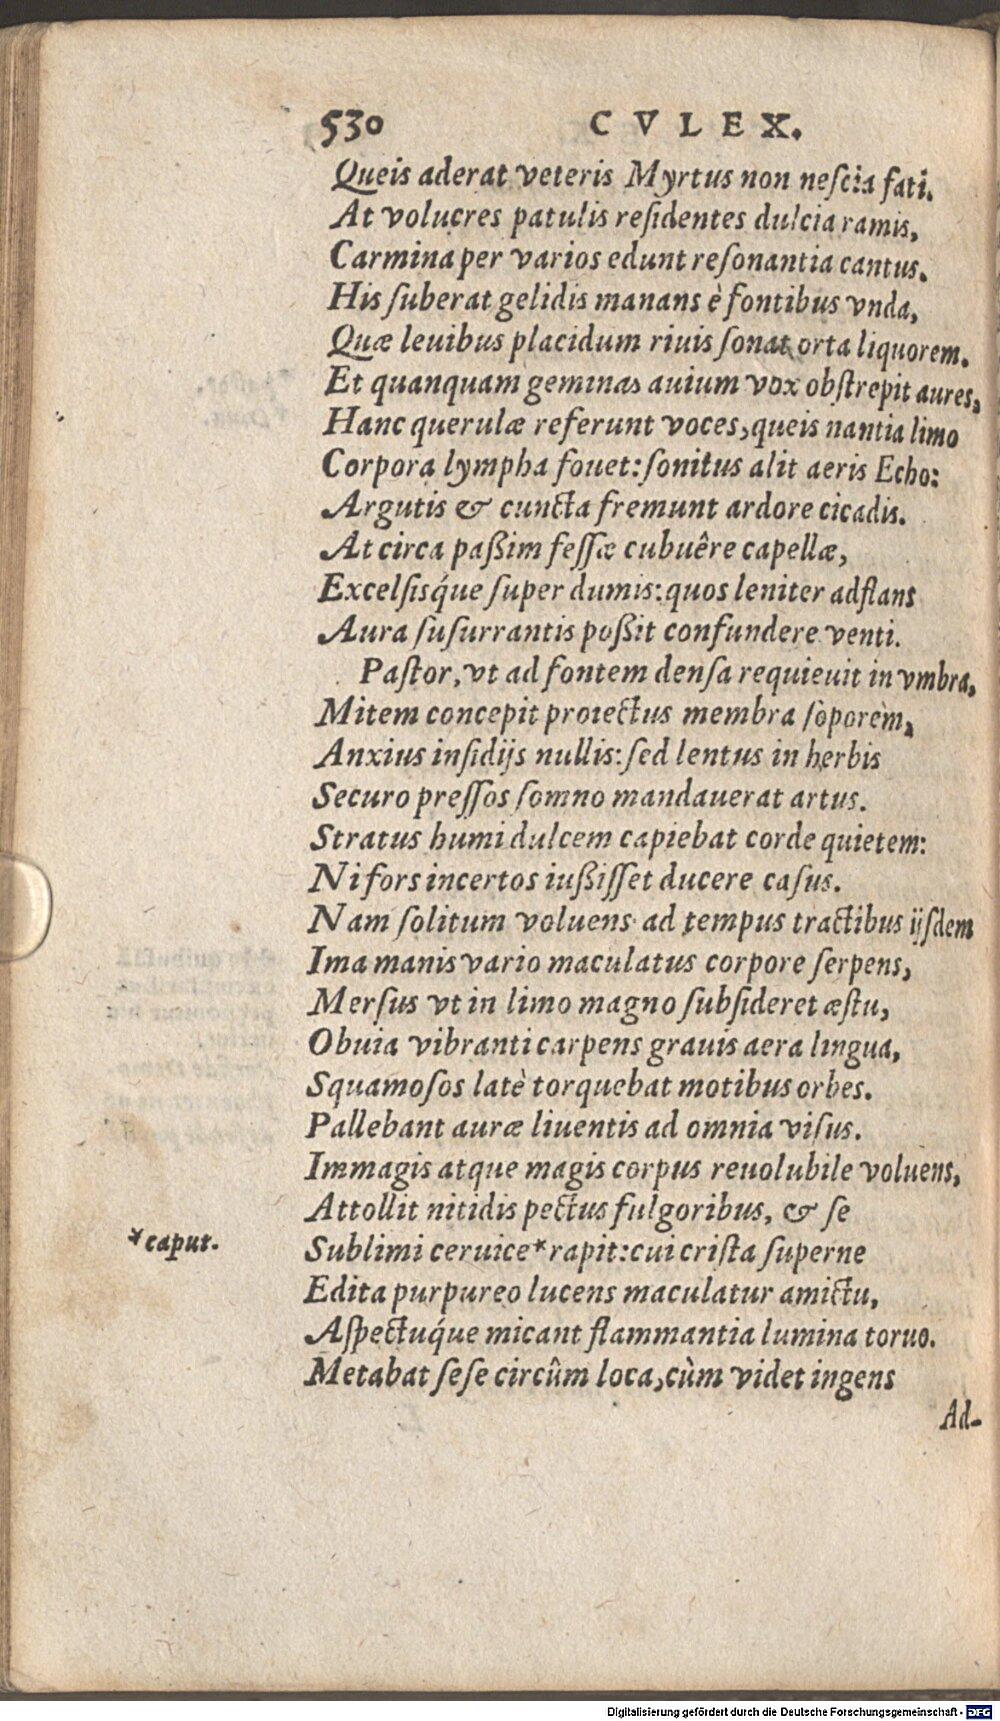 530 CVLEX.
Queis aderat veteris Myrtus non neſcia fati.
At volucres patulis reſidentes dulcia ramis,
Carmina per varios edunt reſonantia cantus.
His ſuberat gelidis manans è fontibus vnda,
Quæ leuibus placidum riuis ſonat orta liquorem.
Et quanquam geminas auium vox obſtrepit aures,
Hanc querulæ referunt voces, queis nantia limo
Corpora lympha fouet: ſonitus alit aeris Echo:
Argutis & cuncta fremunt ardore cicadis.
At circa paßim feſſæ cubuêre capellæ,
Excelſisq́ue ſuper dumis: quos leniter adflans
Aura ſuſurrantis poßit confundere venti.
Paſtor, vt ad fontem denſa requieuit in vmbra,
Mitem concepit proiectus membra ſoporem,
Anxius inſidijs nullis: ſed lentus in herbis
Securo preſſos ſomno mandauerat artus.
Stratus humi dulcem capiebat corde quietem:
Ni fors incertos iußiſſet ducere caſus.
Nam ſolitum voluens ad tempus tractibus ijſdem
Immanis vario maculatus corpore ſerpens,
Merſus vt in limo magno ſubſideret æſtu,
Obuia vibranti carpens grauis aera lingua,
Squamoſos latè torquebat motibus orbes.
Pallebant auræ liuentis ad omnia viſus.
Immagis atque magis corpus reuolubile voluens,
Attollit nitidis pectus fulgoribus, & ſe
*caput.
Sublimi ceruice*rapit: cui criſta ſuperne
Edita purpureo lucens maculatur amictu,
Aſpectuq́ue micant flammantia lumina toruo.
Metabat ſeſe circûm loca, cùm videt ingens
Ad-
Digitalisierung gefördert durch die Deutsche Forschungsgemeinschaft - DFG